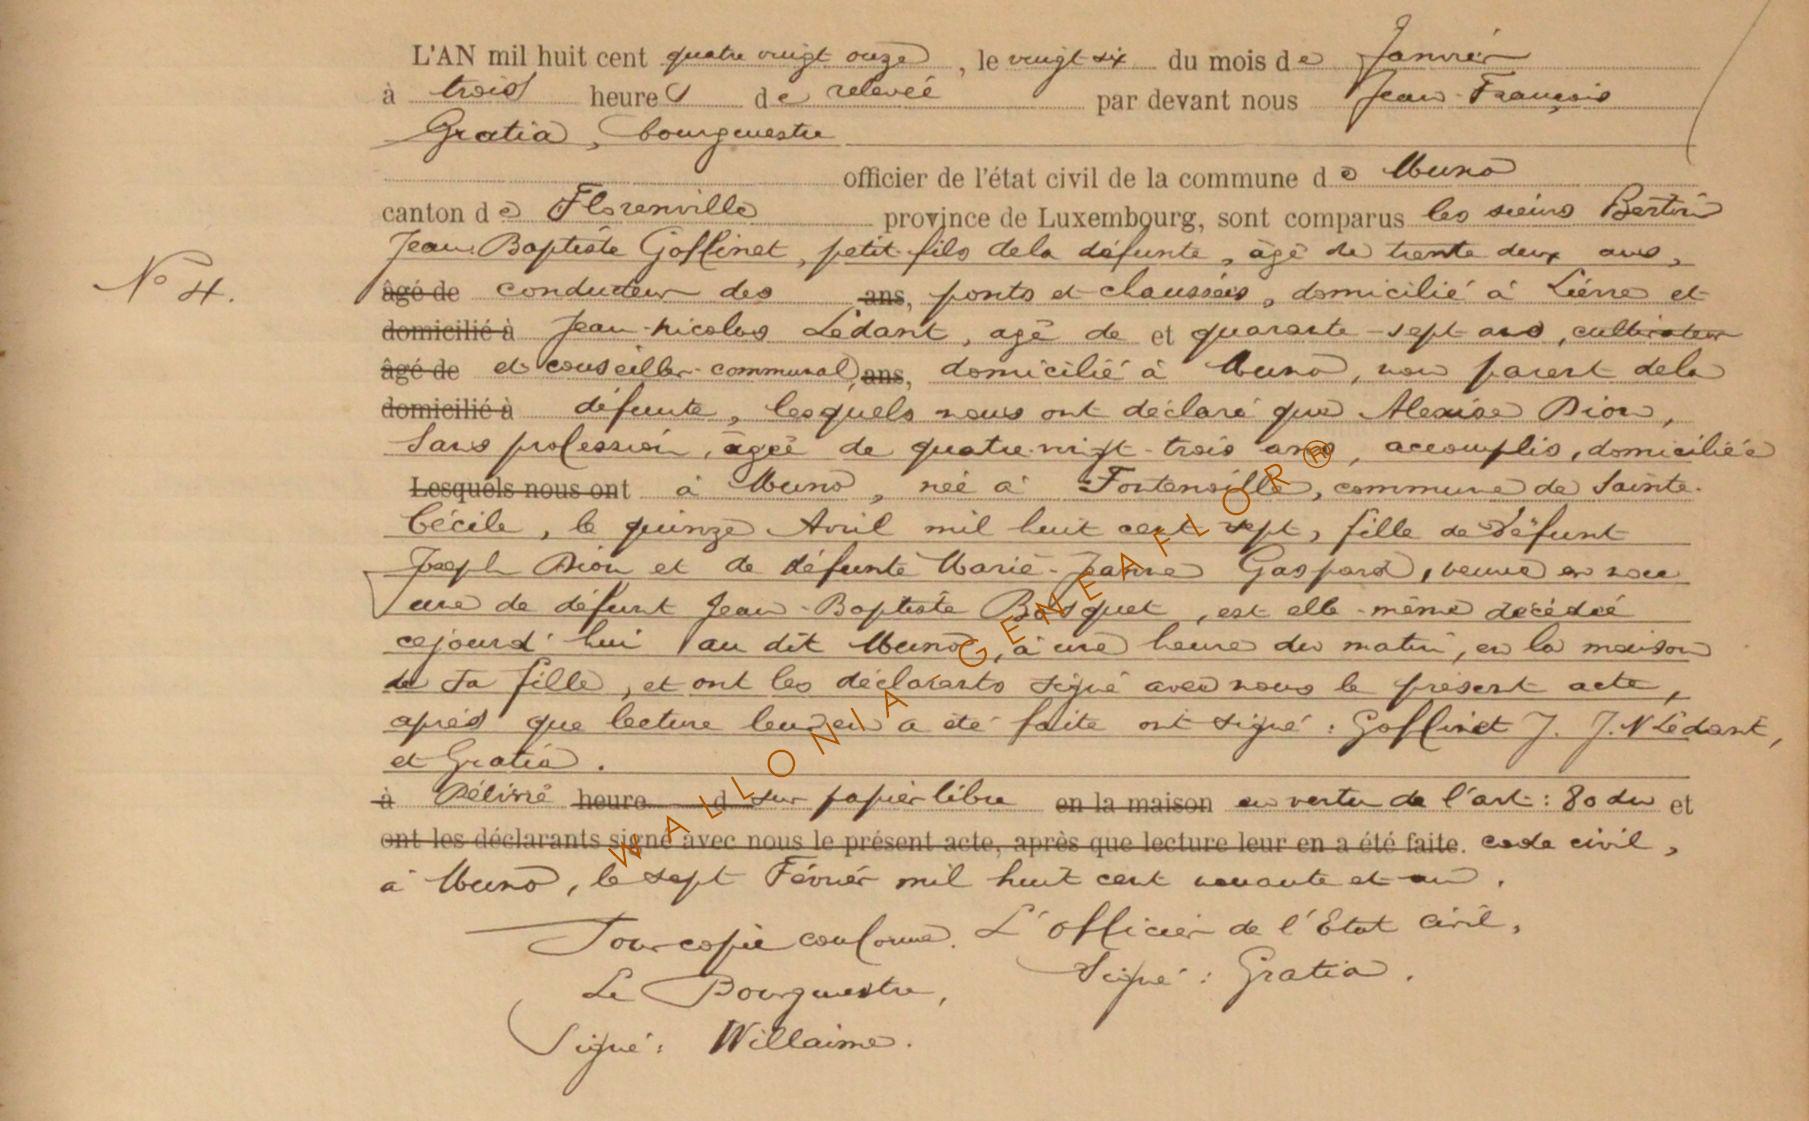 L'AN mil huit cent quatre vingt onze, le vingt-six du mois de Janvier
à trois heures de relevée par devant nous Jean-François
Gratia, bourgmestre
officier de l'état civil de la commune de Muno
canton de Florenville province de Luxembourg, sont comparus les sieurs Bertin
Jean-Baptiste Goffinet, petit-fils dela défunte, âgé de trente deux ans,
âgé de conducteur des ans, ponts et chaussées, domicilié à Lierre et
domicilié à Jean-Nicolas Lédant, agé de et quarante-sept ans, cultivateur
âgé de et conseiller-communal, ans, domicilié à Muno, non parent dela
domicilié à défunte, lesquels nous ont déclaré que Alexise Dion,
Sans profession, âgée de quatre-vingt-trois ans, accomplis, domiciliée
Lesquels nous ont à Muno, née à Fontenoille, commune de Sainte-
Cécile, le quinze Avril mil huit cent sept, fille de Défunt
Joseph Dion et de défunte Marie-Jeanne Gaspard, veuve en
une de défunt Jean-Baptiste Bosquet, est elle-même décédée
cejourd'hui au dit Muno, à une heure du matin, en la maison
de sa fille, et ont les déclarants signé avec nous le présent acte,
après que lecture leur en a été faite ont signé : Goffinet J. J. N Lédant,
et Gratia.
à Délivré heure d sur papier libre en la maison en vertu de l'art: 80 du et
ont les déclarants signé avec nous le présent acte, après que lecture leur en a été faite. code civil,
à Muno, le sept Février mil huit cent nonante et un.
Pour copie conforme. L'officier de l'Etat civil,
Le Bourgmestre, Signé : Gratia.
Signé : Willaime.
N° 4.
WALLONIA GENEAFLOR®